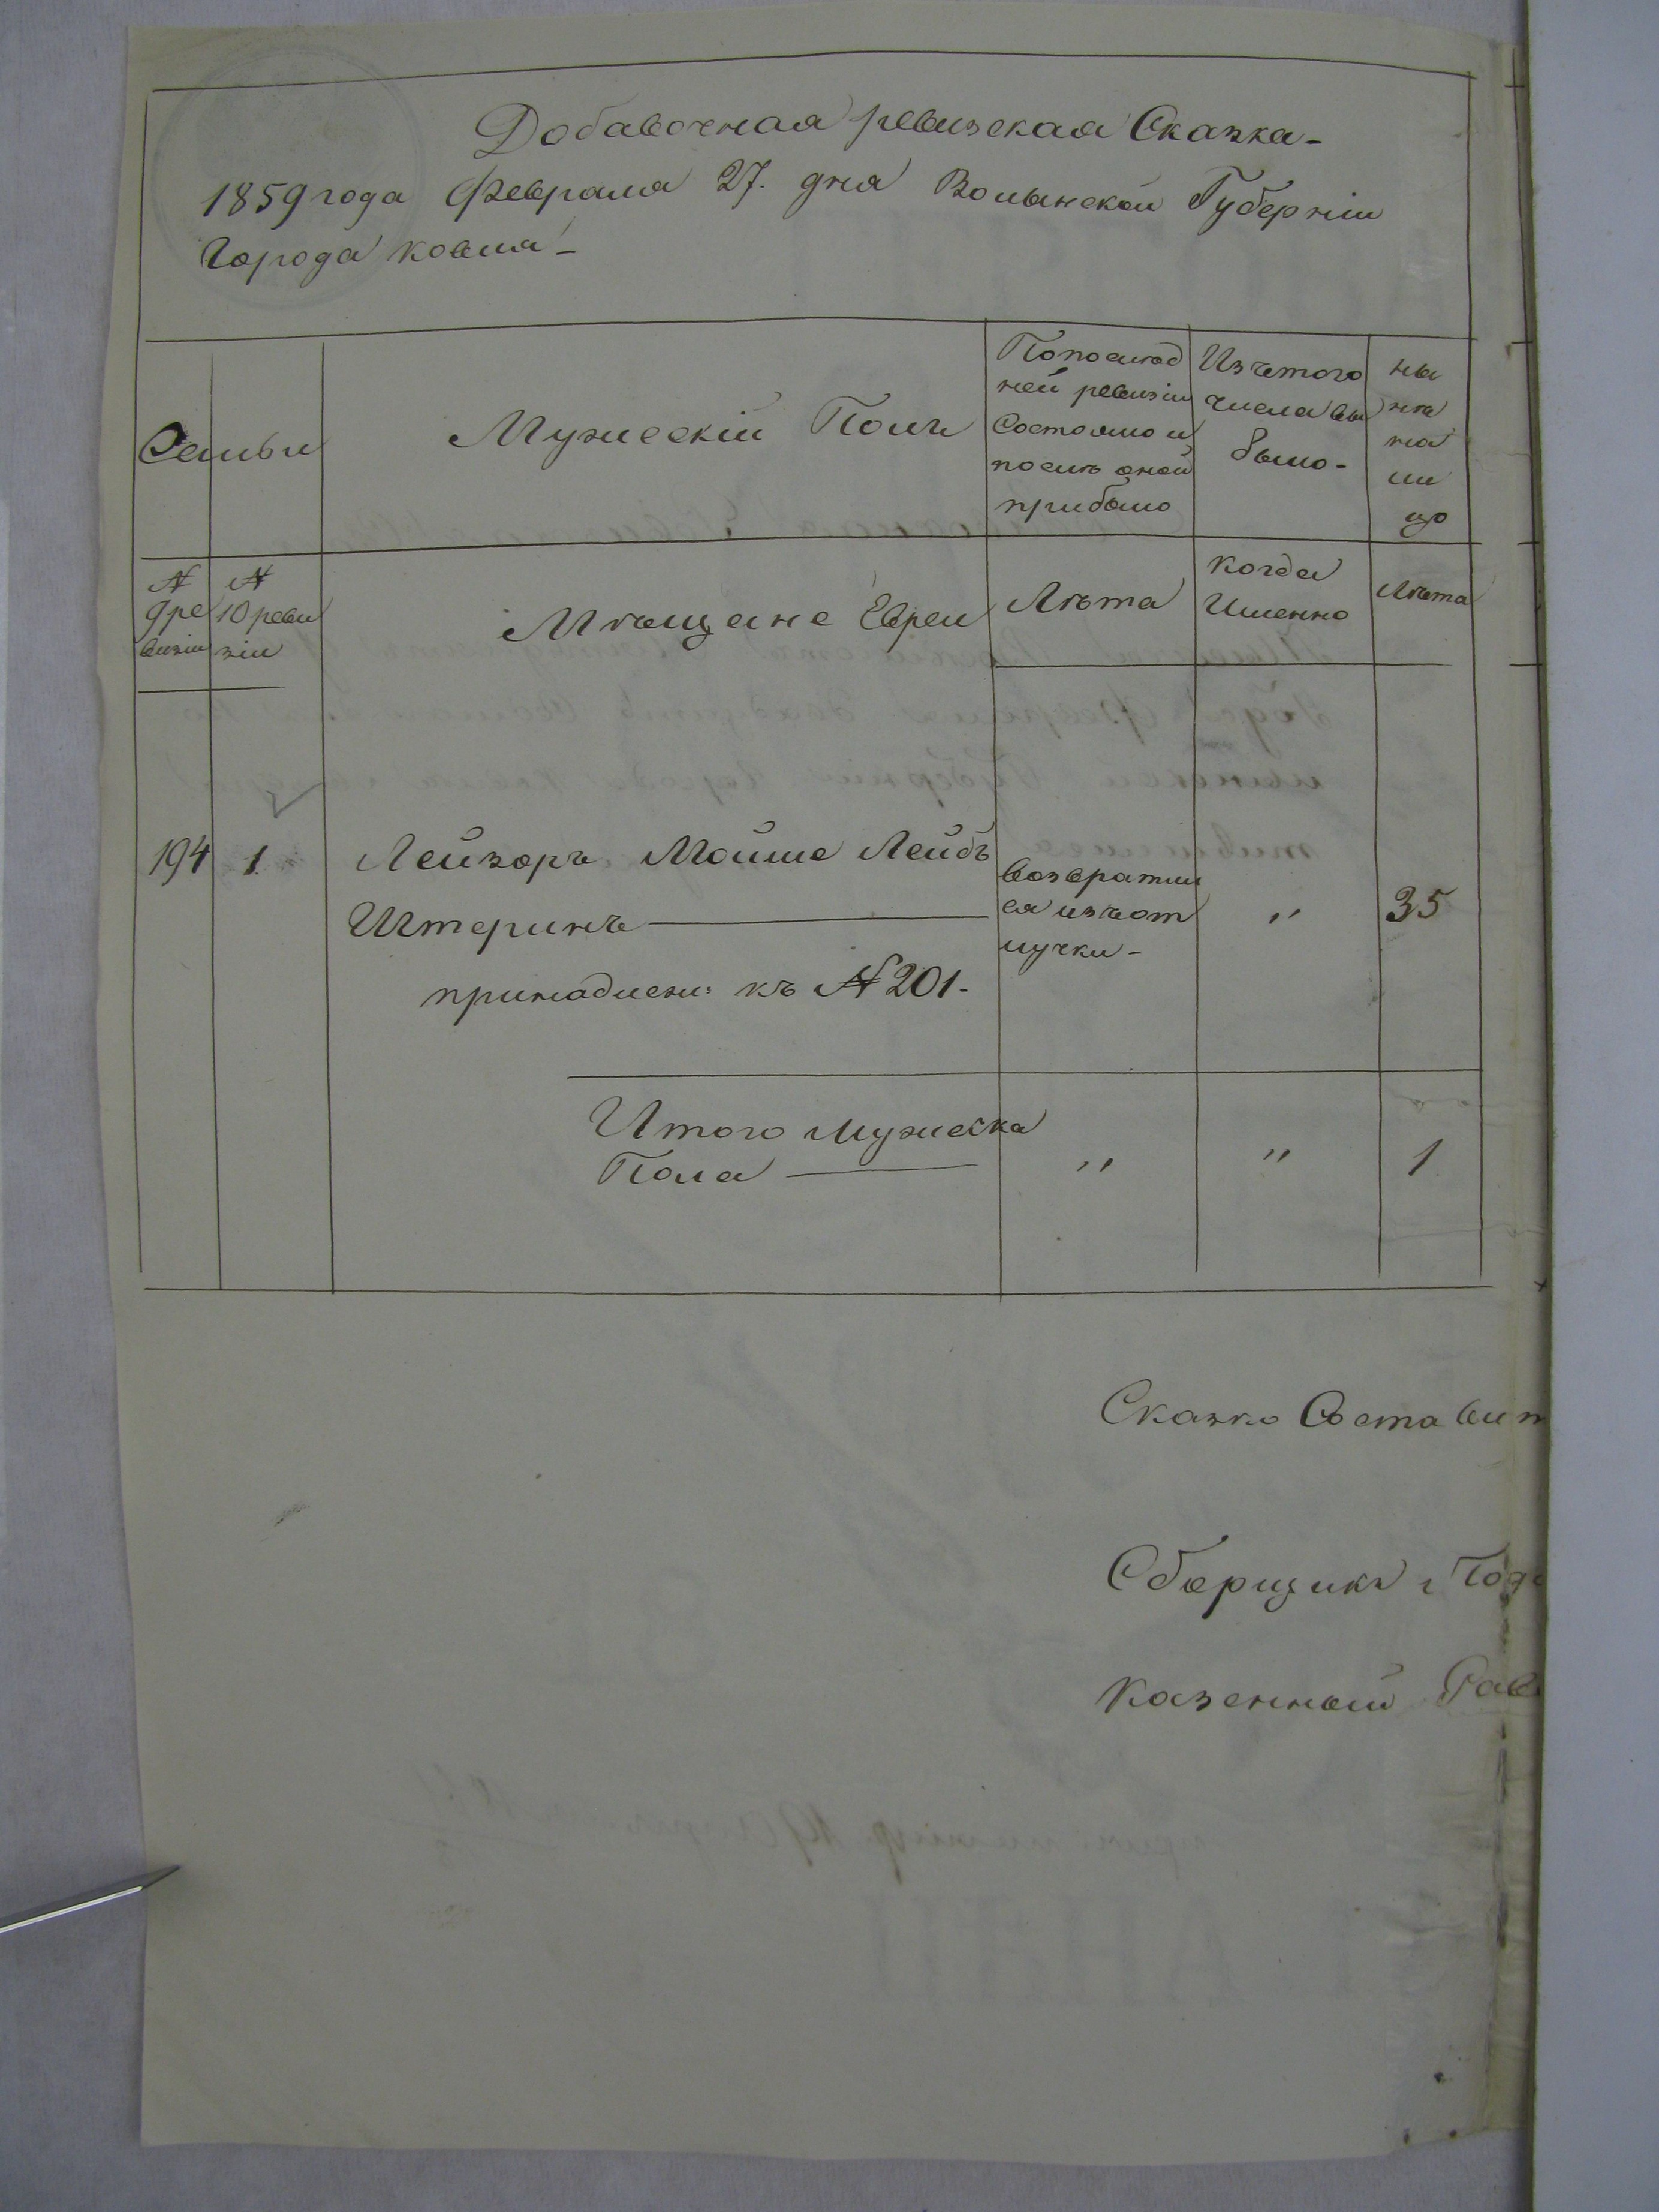 Добавочная ревизская Сказка-
1859 года Февраля 27. дня Волынской Губерніи
Города Ковля-
Семьи
Мужескій Полъ
Попослѣд
ней ревизіи
Состояло и
послѣ оной
прибыло
Изъ этого
числа вы
было-
ны
нѣ
на
ли
цо
№
9 ре
визіи
№
10 реви
зіи
Мѣщане Евреи
Лѣта
Когда
Именно
Лѣта
194
1
Лейзоръ Мойше Лейбъ
Штеринъ
принадлеж: къ №201-
возвратил
ся изъ от
лучки-
"
35
Итого мужеска
Пола
"
"
1
Сказку Состави
Сборщикъ
Казенный Рав